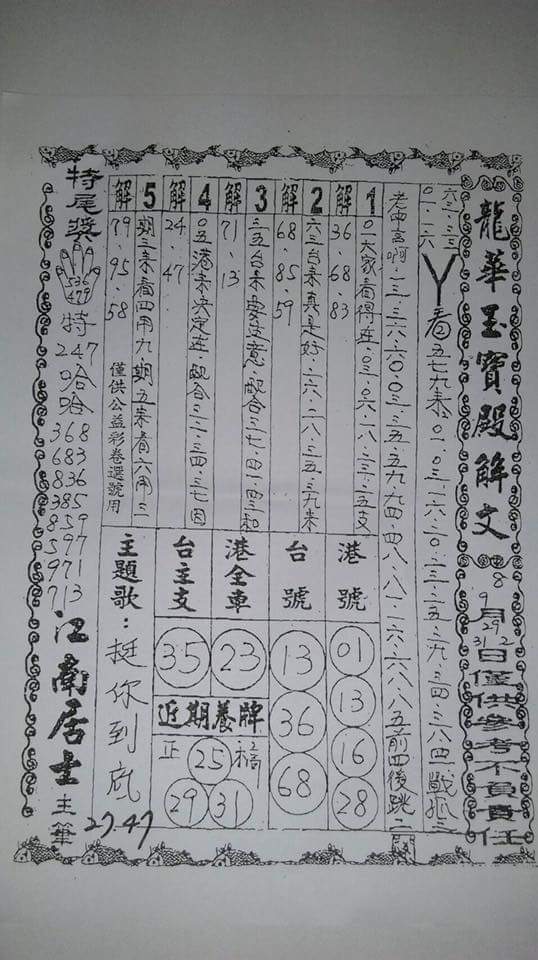 龍華玉寶殿解文
8
9月29 31 2日僅供參考不負責任
六.二.三三
〇一.二六
丫看五七九來.〇一.〇三.一六.二〇.二三.二五.二九.三四.三八四一戰孤三
老中言啊.三.三六.六〇.〇三.三五.五九.九四.四八.八一.一六.六八.八五前四後跳二
解1
〇一大家看得准.〇三.〇六.一八.二三.二五支
36.68.83
解2
六三台來真是好.一六.二八.三五.三九來
68.85.59
解3
三五台來要注意.配合三七.四一.四三和
71.13
解4
〇五港來決定准.配合三二.三四.三七因
24.47
解5
期三來看四用九期五來看六用二
79.95.58
僅供公益彩卷選號用
港號
01
13
16
28
台號
13
36
68
港全車
23
台主支
35
近期養牌
正
25
福
29
31
主題歌：挺你到底
27.47
特尾獎
536
479
特
247
哈
哈
368
683
836
385
859
597
971
713
江南居士主筆